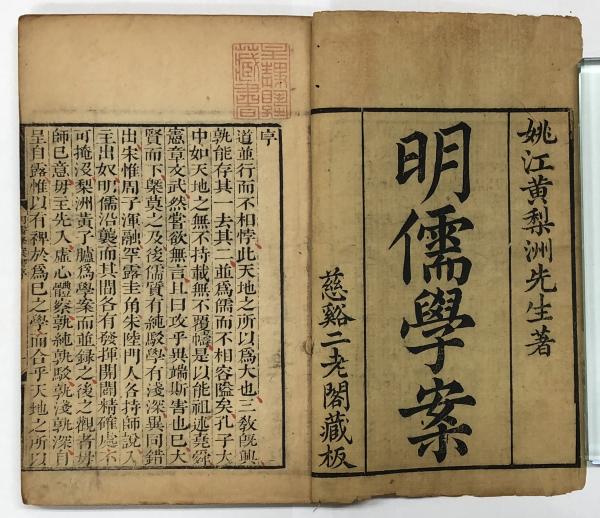 姚江黃梨洲先生著
明儒學案
慈谿二老閣藏板
序
道並行而不相悖此天地之所以爲大也三敎旣興
孰能存其一去其二並爲儒而不相容隘矣孔子大
中如天地之無不持載無不覆幬是以能祖述堯舜
憲章文武然嘗欲無言且曰攻乎異端斯害也已大
賢而下槩莫之及後儒質有純駁學有淺深異同錯
出宋惟周子渾融罕露圭角朱陸門人各持師說入
主出奴明儒沿襲而其間各有發揮開闢精確處不
可掩沒梨洲黃子臚爲學案而並錄之後之觀者毋
師已意毋主先人虛心體察孰純孰駁孰淺孰深自
呈自露惟以有裨於爲已之學而合乎天地之所以
藏書